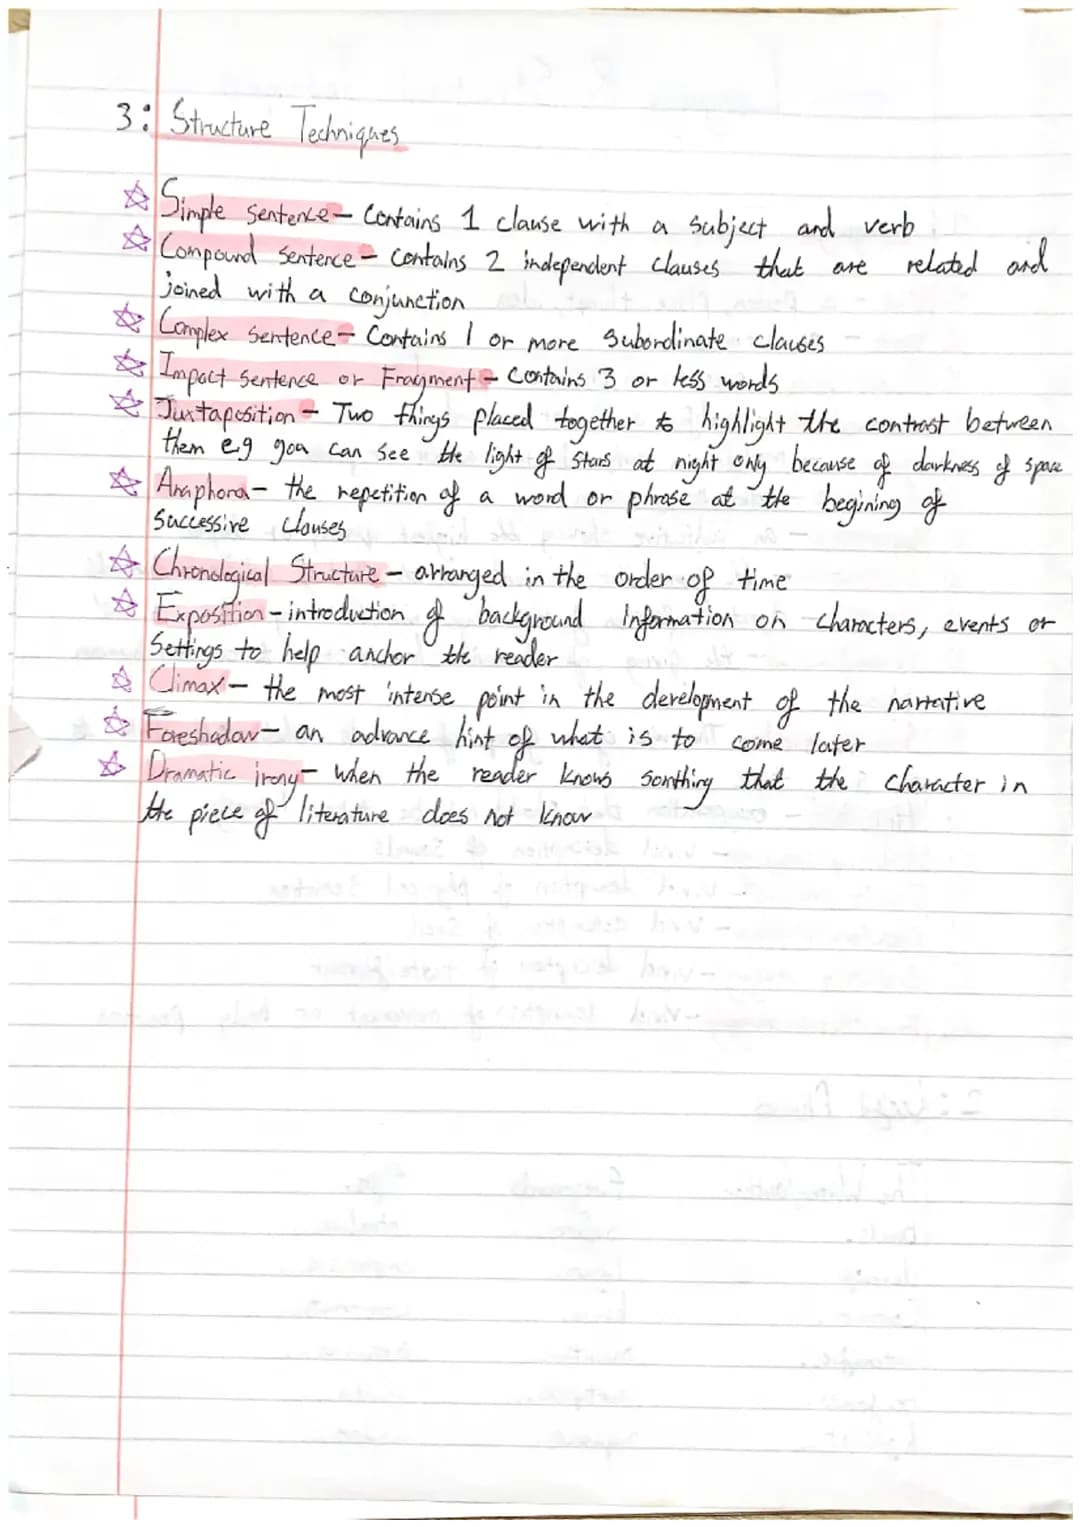 3: Structure Techniques
Simple sentence - Contains 1 clause with a subject and verb
Compound sentence - contains 2 independent clauses that are related and
joined with a conjunction
Complex sentence - Contains 1 or more subordinate clauses
Impact sentence or Fragment - contains 3 or less words
Juxtaposition - Two things placed together to highlight the contrast between
them e.g you can see the light of stars at night only because of darkness of space
Anaphora - the repetition of a word or phrase at the begining of
successive clauses
Chronological Structure - arranged in the order of time
Exposition - introduction of background information on characters, events or
Settings to help anchor the reader
Climax - the most intense point in the development of the narrative
Foreshadow - an advance hint of what is to come later
Dramatic irony - when the reader knows somthing that the character in
the piece of literature does not know